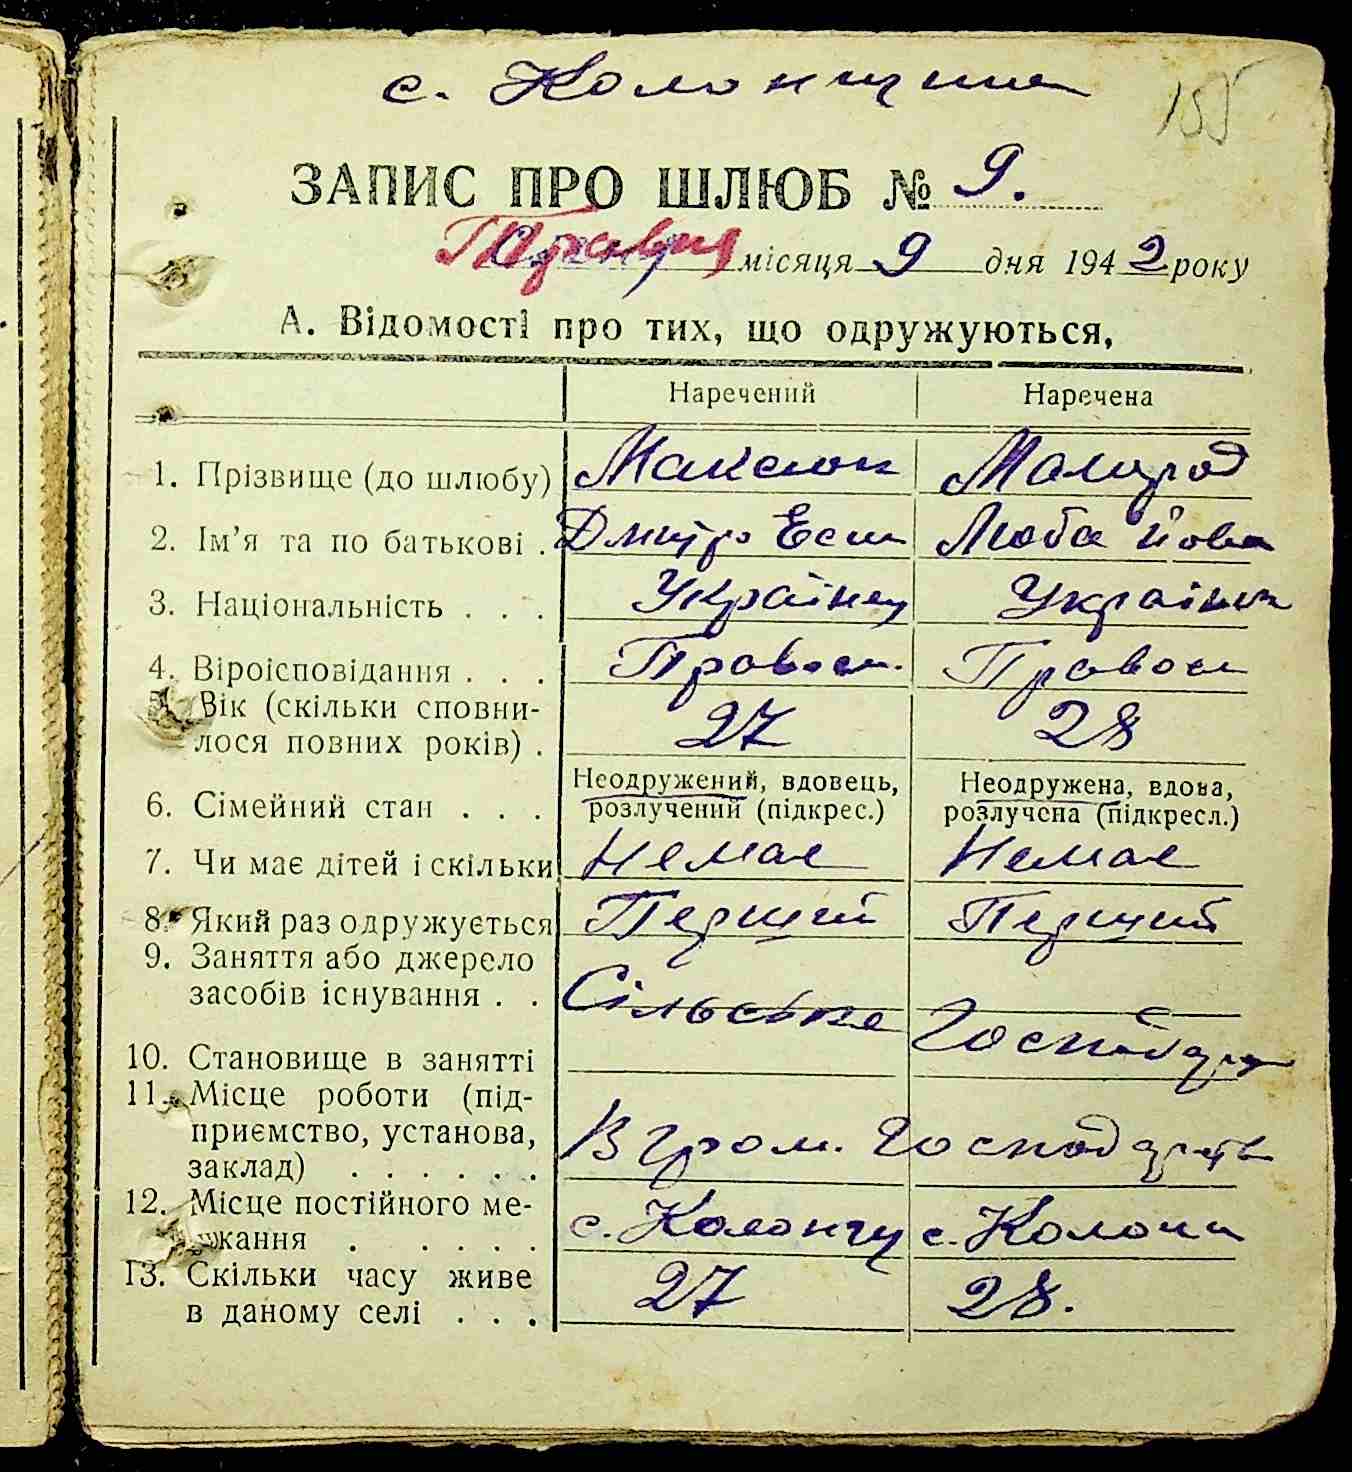 с. Колонщина
155
ЗАПИС ПРО ШЛЮБ № 9.
Травня місяця 9 дня 1942 року
А. Відомості про тих, що одружуються,
Наречений Наречена
1. Прізвище (до шлюбу) Максюк
2. Ім’я та по батькові . Дмитро Люба Йова
3. Національність . . . Українец Українка
4. Віроісповідання . . . Правосл. Правосл
5. Вік (скільки сповни-
лося повних років) . 27 28
Неодружений, вдовець, Неодружена, вдова,
6. Сімейний стан . . . розлучений (підкрес.) розлучена (підкресл.)
7. Чи має дітей і скільки Немає Немає
8. Який раз одружується Перший Перший
9. Заняття або джерело
засобів існування . . Сільське Господар
10. Становище в занятті
11. Місце роботи (під-
приємство, установа, В гром. Господарств
заклад) . . . . . .
12. Місце постійного ме-
шкання . . . . . с. Колонщ с. Колони
13. Скільки часу живе
в даному селі . . . 27 28.